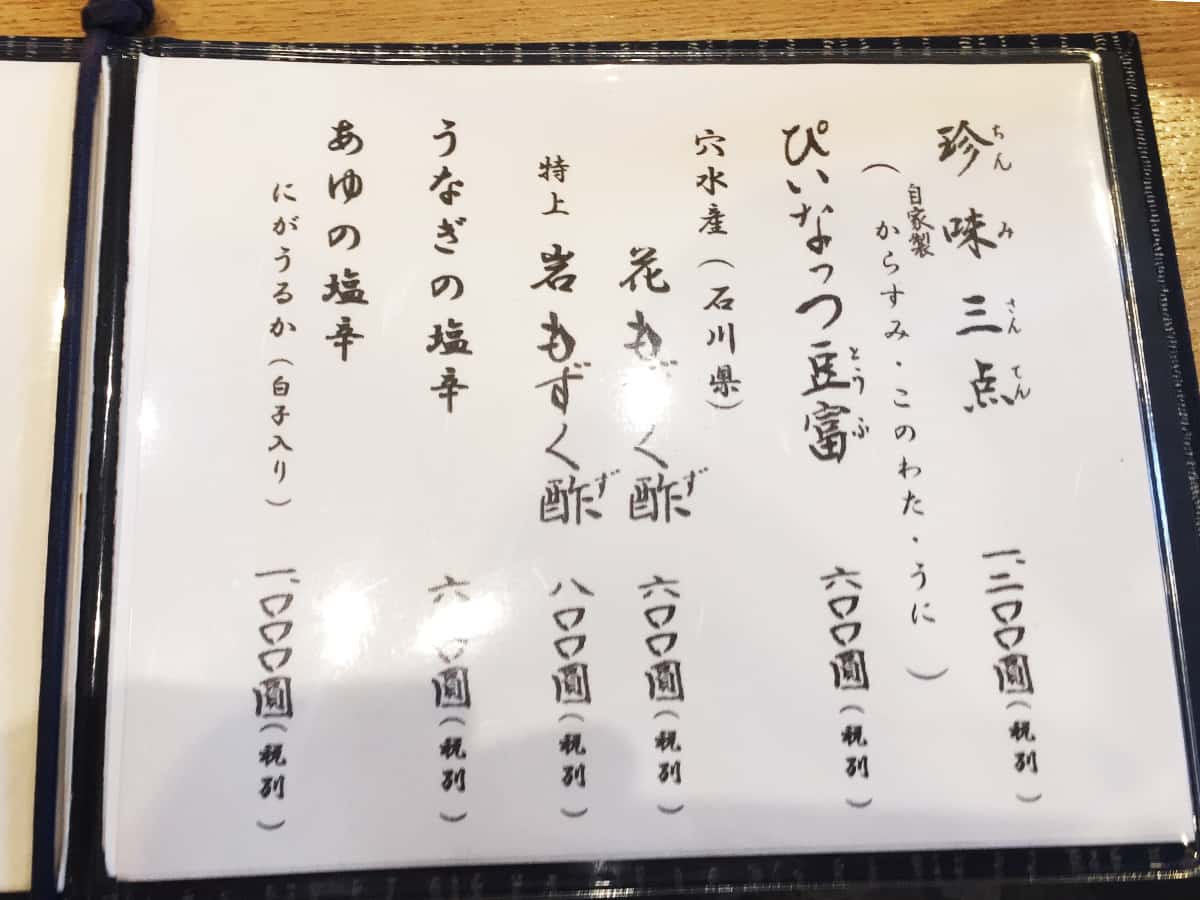 珍味三点 一、二〇〇圓(税別)
ちんみさんてん
(自家製 からすみ・このわた・うに)
ぴいなっつ豆富 六〇〇圓(税別)
とうふ
穴水産(石川県)
花もずく酢 六〇〇圓(税別)
ず
特上 岩もずく酢 八〇〇圓(税別)
ず
うなぎの塩辛 六〇〇圓(税別)
あゆの塩辛
にがうるか(白子入り) 一、〇〇〇圓(税別)